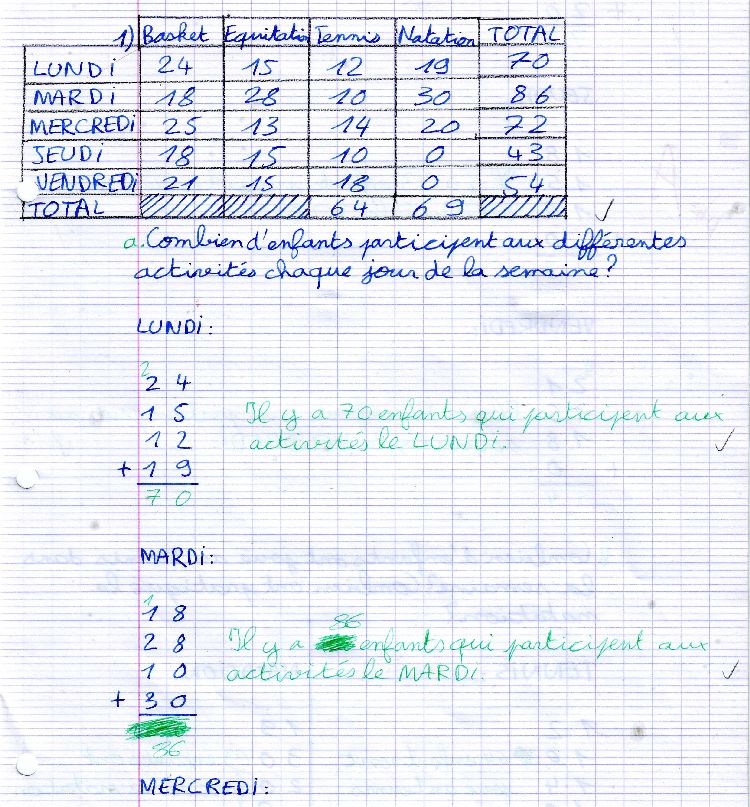 1) Basket Equitation Tennis Natation TOTAL
LUNDI 24 15 12 19 70
MARDI 18 28 10 30 86
MERCREDI 25 13 14 20 72
JEUDI 18 15 10 0 43
VENDREDI 21 15 18 0 54
TOTAL 64 69
a. Combien d'enfants participent aux différentes
activités chaque jour de la semaine?
LUNDI:
2
24
15
12
+ 19
70
Il y a 70 enfants qui participent aux
activités le LUNDI.
MARDI:
1
18
28
10
+ 30
86
86
Il y a enfants qui participent aux
activités le MARDI.
MERCREDI: